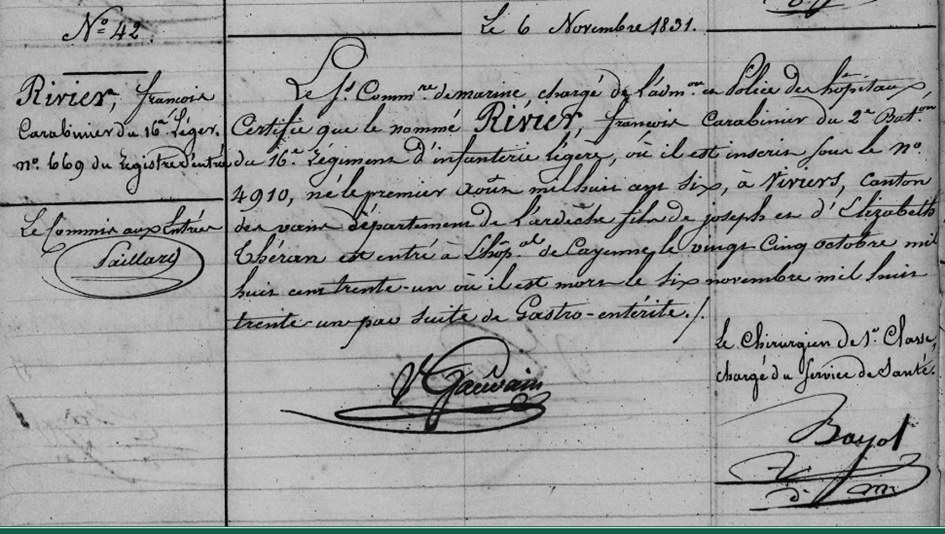 N.º 42.
Rivier, françois
Carabinier du 16e Léger.
nº. 669 du Registre d'entrée
Le Commis aux Entrées
Paillard
Le 6 Novembre 1831.
Le Sr. Commre. de marine chargé de l'admon. et Police des hôpitaux,
Certifie que le nommé Rivier, françois Carabinier du 2e Baton.
du 16e. Régiment d'infanterie légère, où il est inscrit sous le no.
4910, né le premier août mil huit cent six, à Viviers, Canton
des vans département de l'ardèche fils de joseph et d'Elizabeth
Théran est entré à L'hôpal. de Cayenne, le vingt Cinq octobre mil
huit cent trente-un où il est mort le six novembre mil huit
trente-un par suite de Gastro-entérite./.
Le Chirurgien de 1re. Classe,
chargé du Service de Santé.
Vr Gauvain
Bayol